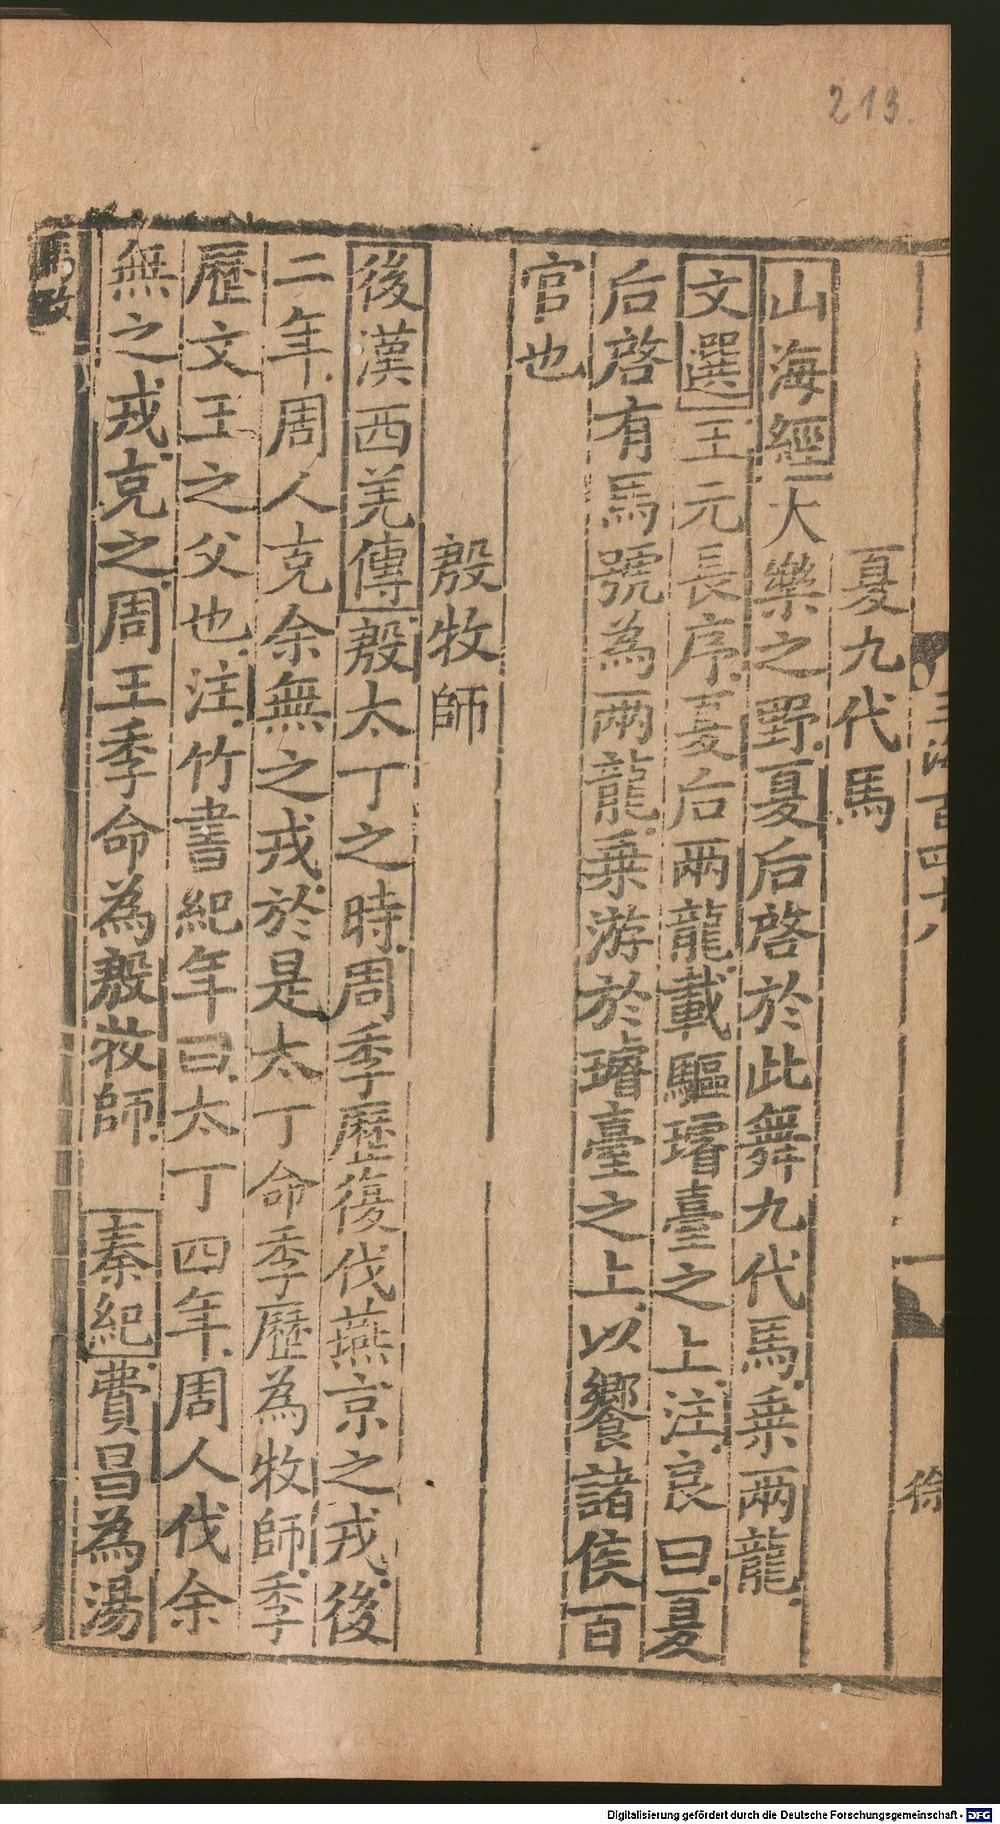 213.
玉海百四十八
一
徐
夏九代馬
山海經大樂之野夏后啓於此舞九代馬乗兩龍
文選王元長序夏后兩龍載驅璿臺之上注良曰夏
后啓有馬號為兩龍乗游於璿臺之上以饗諸侯百
官也
殷牧師
後漢西羌傳殷太丁之時周季歷復伐燕京之戎後
二年周人克余無之戎於是太丁命季歷為牧師季
歷文王之父也注竹書紀年曰太丁四年周人伐余
無之戎克之周王季命為殷牧師 秦紀費昌為湯
馬政
Digitalisierung gefördert durch die Deutsche Forschungsgemeinschaft - DFG